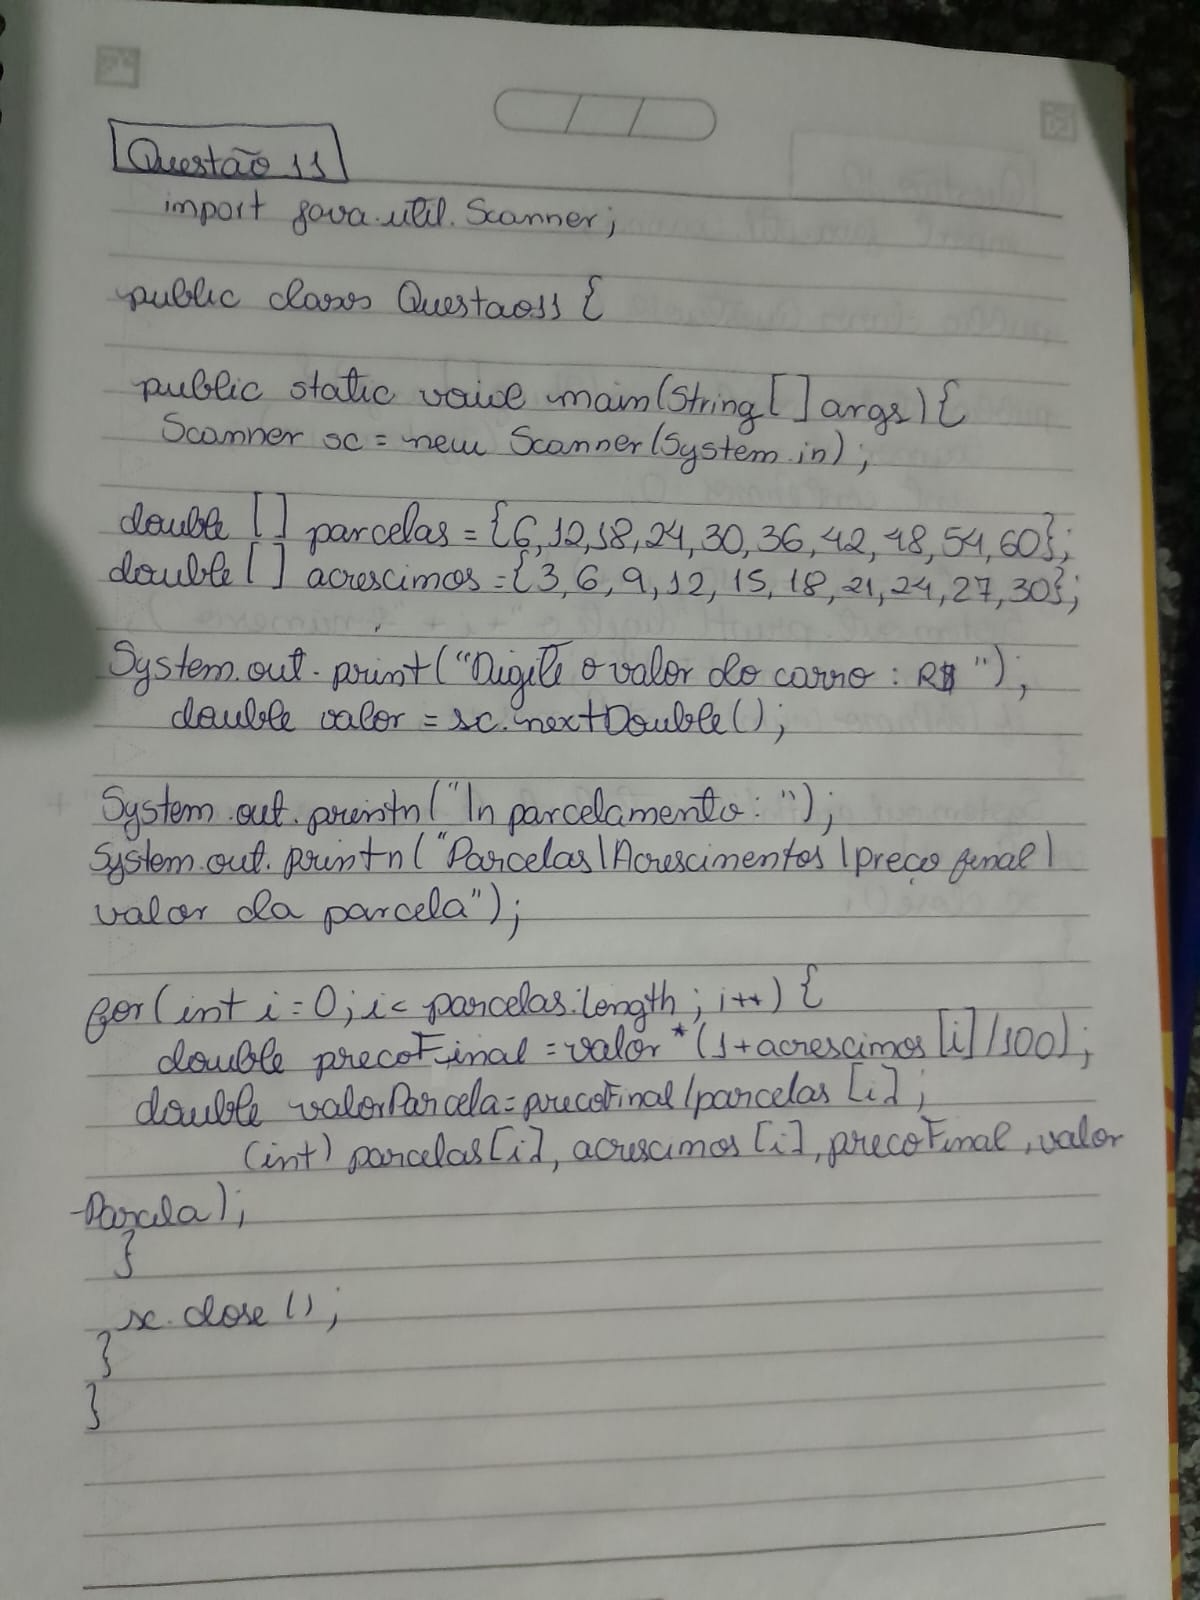 Questão 11
import java.util.Scanner;
public class Questao11 {
public static void main(String[] args){
Scanner sc = new Scanner(System.in);
double [] parcelas = {6,12,18,24,30,36,42,48,54,60};
double [] acrescimos = {3,6,9,12,15,18,21,24,27,30};
System.out.print("Digite o valor do carro: R$ ");
double valor = sc.nextDouble();
System.out.println("\n parcelamento: ");
System.out.println("Parcelas|Acrescimentos|preço final|
valor da parcela");
for(int i=0; i< parcelas.length; i++){
double precoFinal = valor * (1+acrescimos[i]/100);
double valorParcela = precoFinal/parcelas[i];
(int) parcelas[i], acrescimos[i], precoFinal, valor
-Parcela);
}
sc.close();
}
}